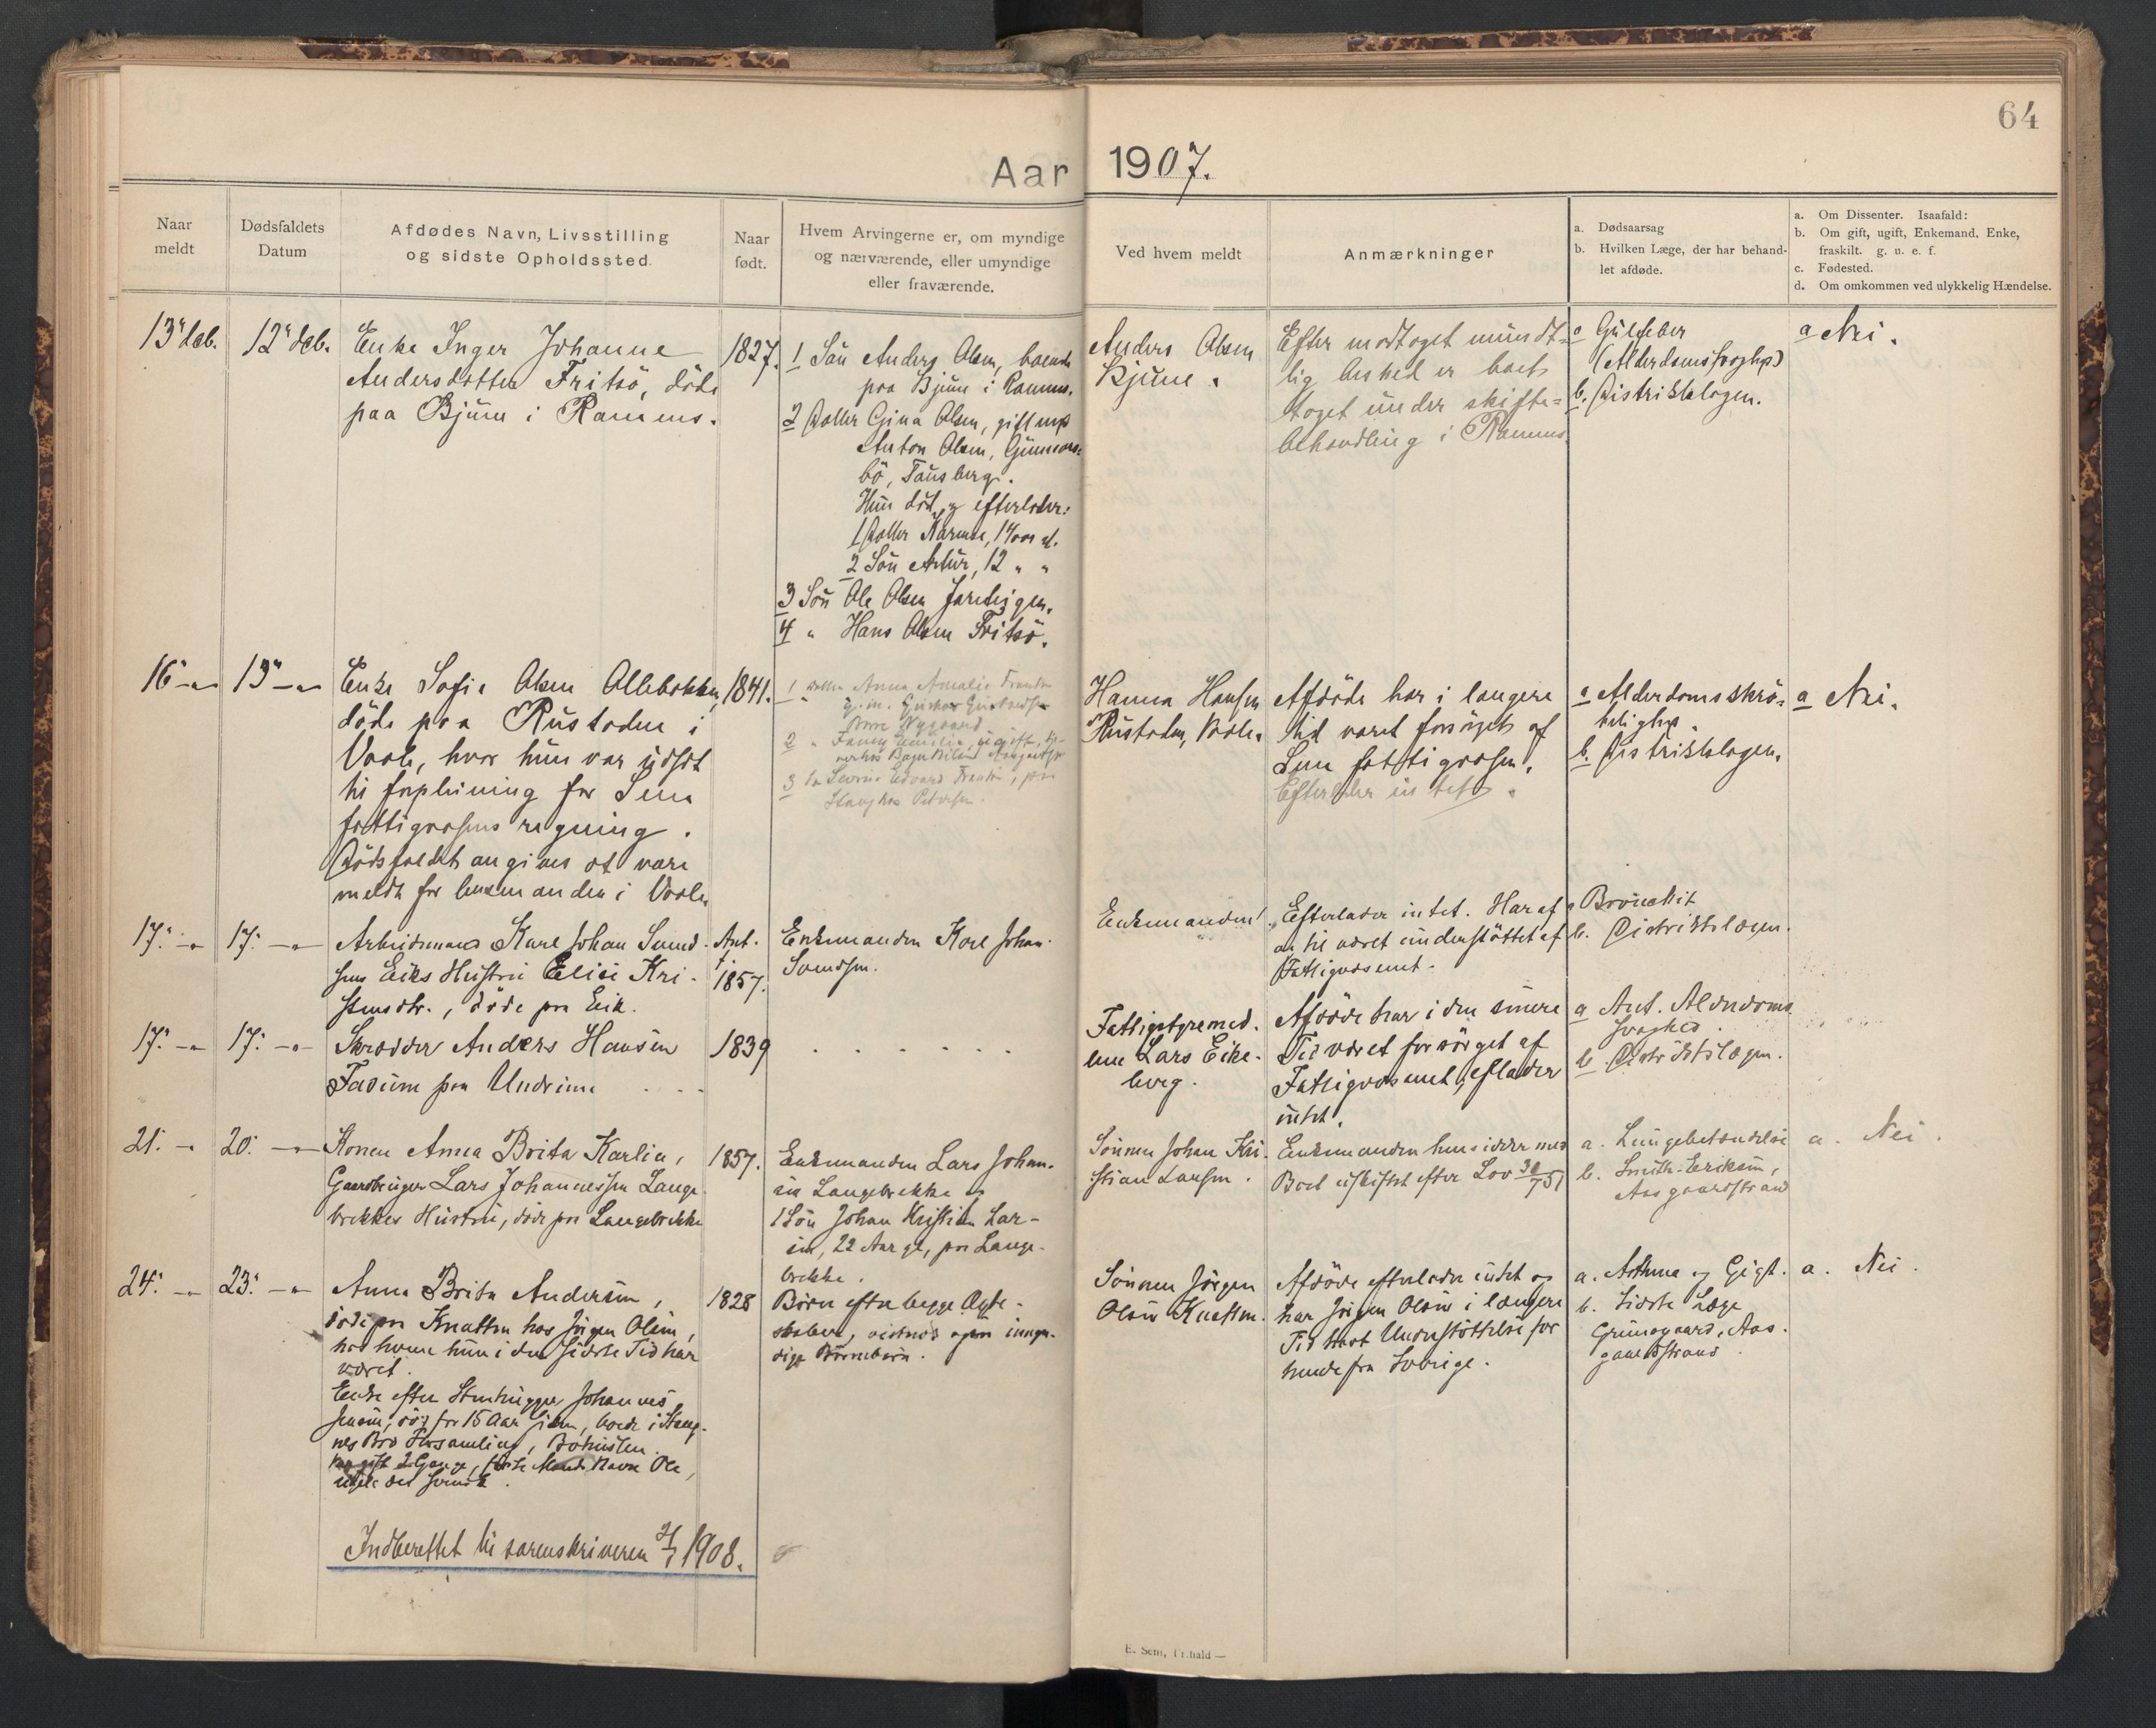 64
Aar 1907.
Naar
meldt
Dødsfaldets
Datum
Afdødes Navn, Livsstilling
og sidste Opholdssted.
Naar
født.
Hvem Arvingerne er, om myndige
og nærværende, eller umyndige
eller fraværende.
Ved hvem meldt
Anmærkninger
a. Dødsaarsag
b. Hvilken Læge, der har behand-
let afdøde.
a. Om Dissenter. Isaafald:
b. Om gift, ugift, Enkemand, Enke,
fraskilt. g. u. e. f.
c. Fødested.
d. Om omkommen ved ulykkelig Hændelse.
13" deb.
12" deb.
Enke Inger Johanne
Andersdatter Fritsö, döde
paa Bjune i Ramnes.
1827.
1 Sön Anders Olsen, boende
paa Bjune i Ramnes.
2 Datter Gina Olsen, gift m/
Anton Olsen, Gunnars-
bö, Tönsberg.
Hun död, og efterlader:
1 Datter
2 Sön Artur, 12 " "
3 Sön Ole Olsen
4 " Hans Olsen Fritsö.
Anders Olsen
Bjune.
Efter modtaget mundt-
lig besked er boet
taget under skifte-
behandling i Ramnes.
a Gulfeber
(Alderdomssvaghed)
b. Distriktslægen.
a Nei.
16 - " -
13" - " -
Enke Sofie Olsen Ollebakken,
döde paa Rustaden i
Vaale, hvor hun var udsat
til forpleining for Sems
fattigvæsens regning.
Dödsfaldet angives at være
meldt for lensmanden i Vaale
1841.
1 datter Anna Amalie
g. m.
2 " Fanny Emilie, ugift,
3 Edvard
Petersen.
Hanna Hansen
Rustaden, Vaale.
Afdöde har i længere
tid været forsörget af
Sem fattigvæsen.
Efterlader intet.
a Alderdomsskrö-
belighed.
b. Distriktslægen.
a Nei.
17. - " -
17. - " -
Arbeidsmand Karl Johan Svend-
sens Eiks Hustru Elise Kri-
stensdtr., döde paa Eik.
Ant.
1857.
Enkemanden Karl Johan
Svendsen.
Enkemanden
Efterlader intet. Har af
og til været understöttet af
Fattigvæsenet.
a Bronchit
b. Distriktslægen.
17. - " -
17. - " -
Skrædder Anders Hansen
Fadum paa Undrum
1839
Fattigstyremed-
lem Lars Eike-
berg.
Afdöde har i den senere
Tid været forsörget af
Fattigvæsenet, eflader
intet.
a Ant. Alderdoms
svaghed.
b. Distriktslægen.
21. - " -
20. - " -
Konen Anna Brita Karlin,
Gaardbruger Lars Johannessen Lange-
brekkes Hustru, döde paa Langebrekke
1857.
Enkemanden Lars Johan-
sen Langebrekke og
1 Sön Johan Kristian Lar-
sen, 22 Aar gl., paa Lange-
brekke.
Sönnen Johan Kri-
stian Larsen.
Enkemanden hensidder med
Boet uskiftet efter Lov 30/7 51
a. Lungebetændelse
b. Smith-Eriksen,
Aasgaardstrand
a. Nei.
24. - " -
23. - " -
Anna Brita Andersen,
döde paa Knatten hos Jörgen Olsen,
hos hvem hun i den sidste Tid har
været.
Enke efter Stenhugger Johannes
Jensen, död for 15 Aar siden, boede i
Forsamling, Bohuslen.
Var gift 2 Gange, förste Mands Navn Ole,
1828
Börn efter begge Ægte-
skaber, vistnok ogsaa umyn-
dige Börnebörn.
Sönnen Jörgen
Olsen Knatten.
Afdöde efterlader intet og
har Jörgen Olsen i længere
Tid havt Understöttelse for
hende fra Sverige.
a. Asthma og Gigt.
b. Sidste Læge
Grünsgaard, Aas-
gaardstrand.
a. Nei.
Indberettet til sorenskriveren 2/1 1908.
E. Sem, Fr.hald —